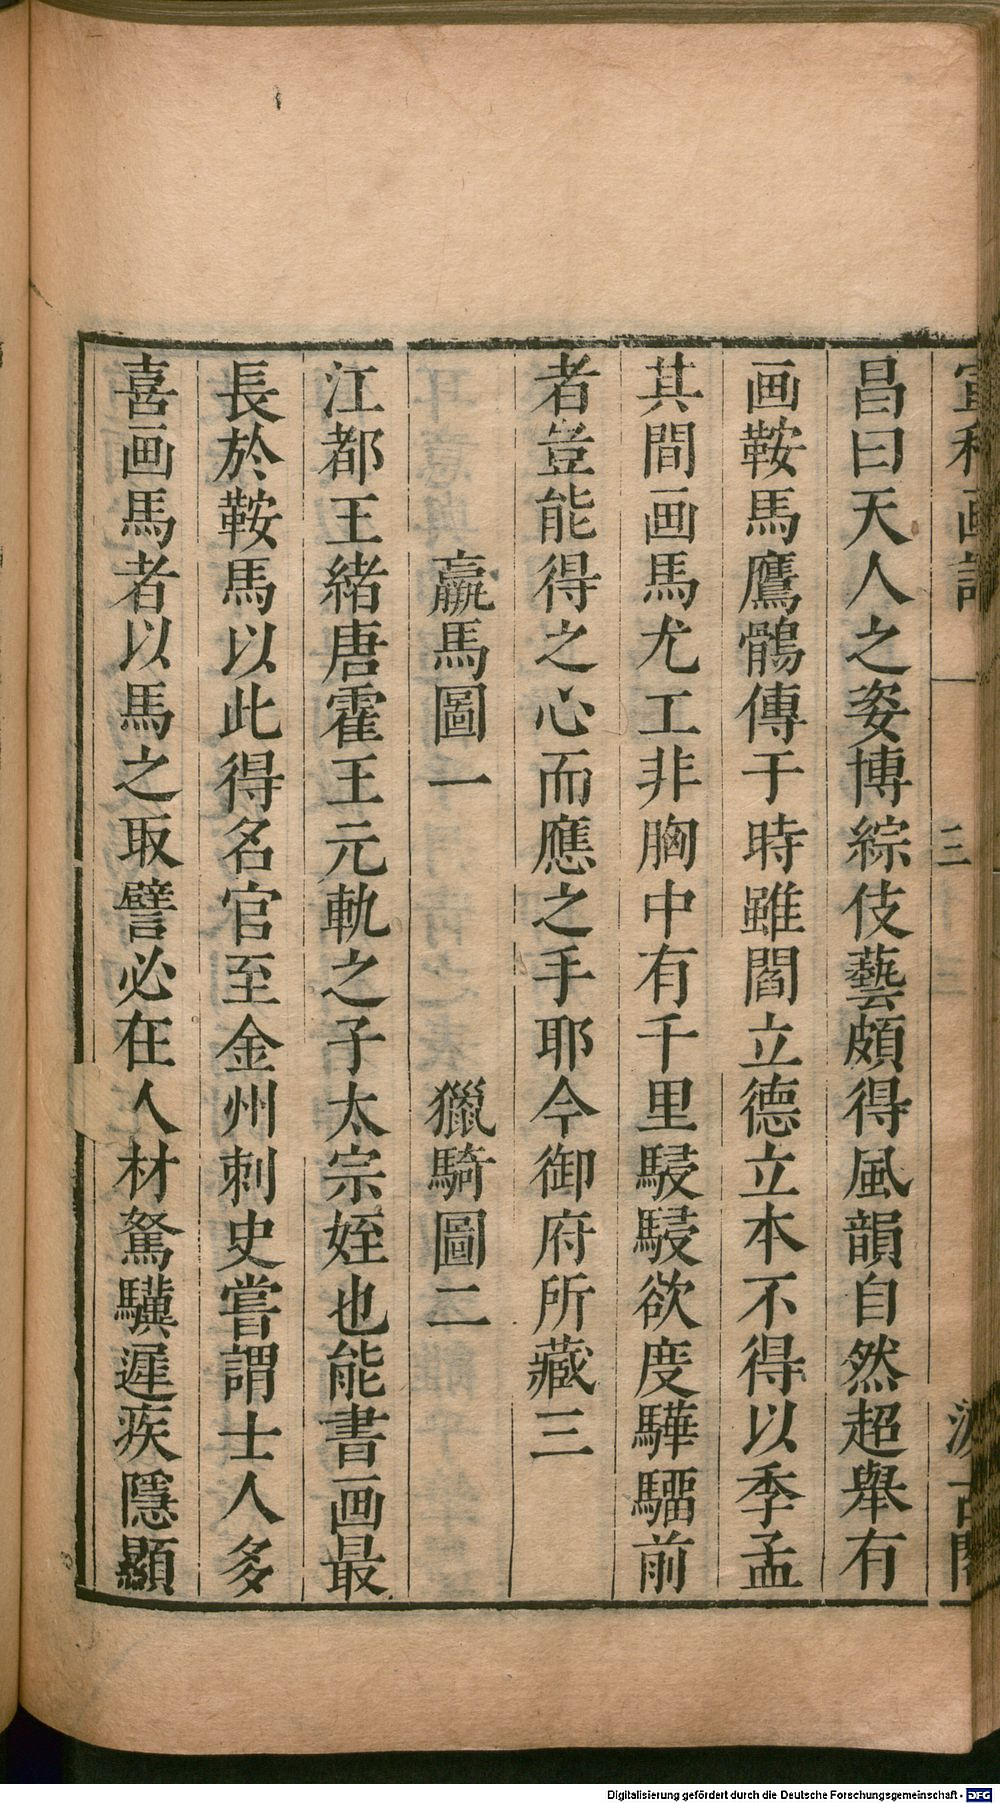 宣和画譜 三 汲古閣
昌曰天人之姿博綜伎藝頗得風韻自然超舉有
画鞍馬鷹鶻傳于時雖閻立德立本不得以季孟
其間画馬尤工非胸中有千里駸駸欲度驊騮前
者豈能得之心而應之手耶今御府所藏三
羸馬圖一 獵騎圖二
江都王緒唐霍王元軌之子太宗姪也能書画最
長於鞍馬以此得名官至金州刺史嘗謂士人多
喜画馬者以馬之取譬必在人材駑驥遲疾隱顯
Digitalisierung gefördert durch die Deutsche Forschungsgemeinschaft - DFG